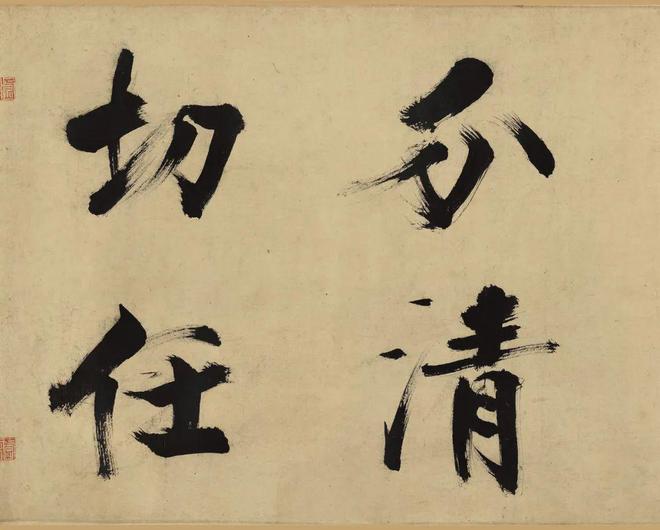 分清
切任